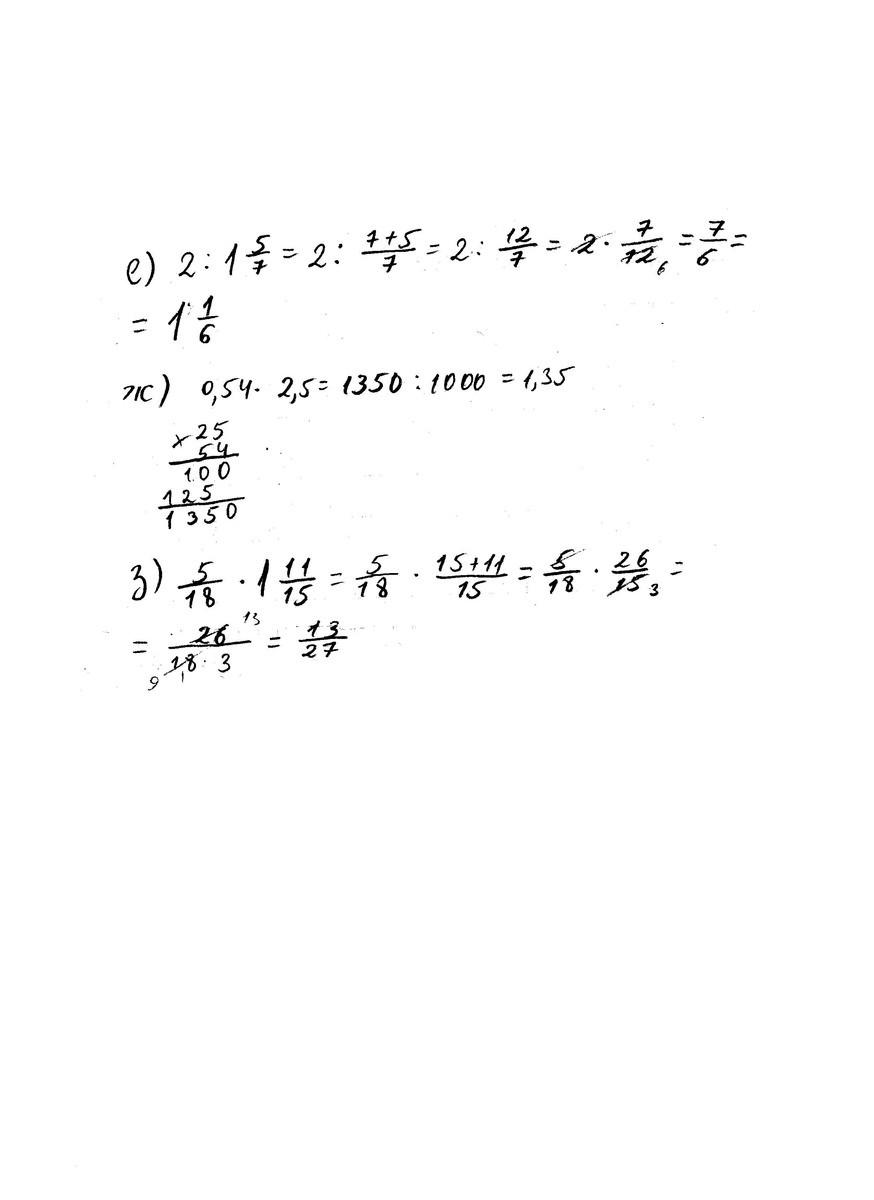 е) 2 : 1 5/7 = 2 : (7+5)/7 = 2 : 12/7 = 2 · 7/12 6 = 7/6 =
= 1 1/6
ж) 0,54 · 2,5 = 1350 : 1000 = 1,35
× 25
54
100
125
1350
з) 5/18 · 1 11/15 = 5/18 · (15+11)/15 = 5/18 · 26/15 3 =
= 26 13/(9 18 · 3) = 13/27